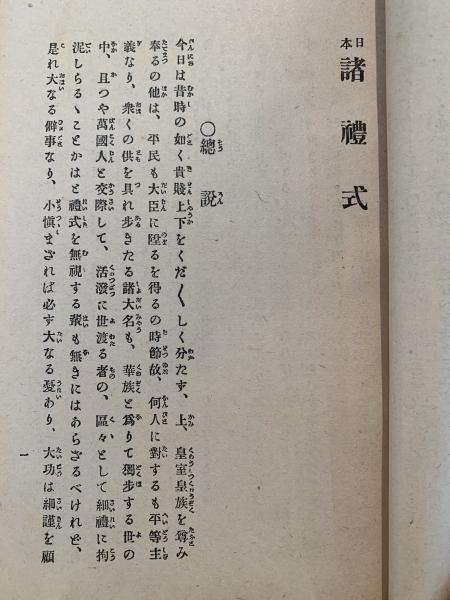 日本諸禮式
〇總說
今日は昔時の如く貴賤上下をくだ〱しく分たず、上、皇室皇族を尊み
奉るの他は、平民も大臣に陞るを得るの時節故、何人に對するも平等主
義なり、衆くの供を具れ步きたる諸大名も、華族と爲りて獨步する世の
中、且つや萬國人と交際して、活潑に世渡る者の、區々として細禮に拘
泥しらるゝことかはと禮式を無視する輩も無きにはあらざるべけれど、
是れ大なる僻事なり、小愼まざれば必ず大なる憂あり、大功は細謹を顧
一